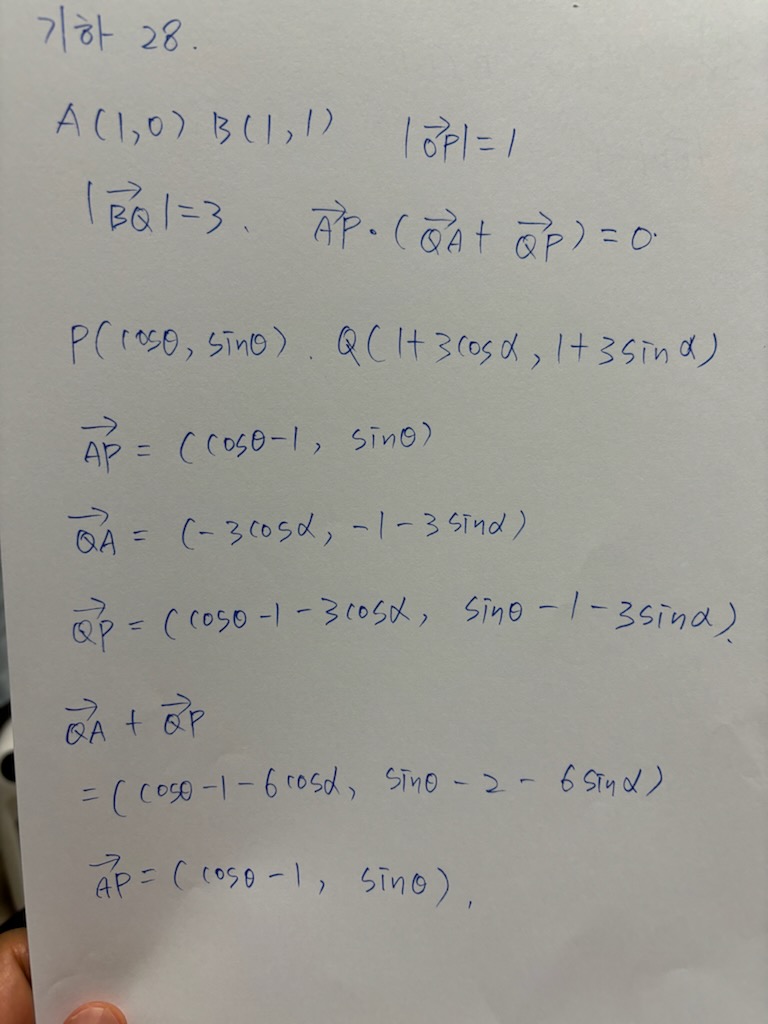 기하 28.
A(1,0) B(1,1) |\overrightarrow{OP}|=1
|\overrightarrow{BQ}|=3. \overrightarrow{AP}·(\overrightarrow{QA}+\overrightarrow{QP})=0.
P(cosθ, sinθ). Q(1+3cosα, 1+3sinα)
\overrightarrow{AP} = (cosθ-1, sinθ)
\overrightarrow{QA} = (-3cosα, -1-3sinα)
\overrightarrow{QP} = (cosθ-1-3cosα, sinθ-1-3sinα).
\overrightarrow{QA} + \overrightarrow{QP}
=(cosθ-1-6cosα, sinθ-2-6sinα)
\overrightarrow{AP} = (cosθ-1, sinθ),